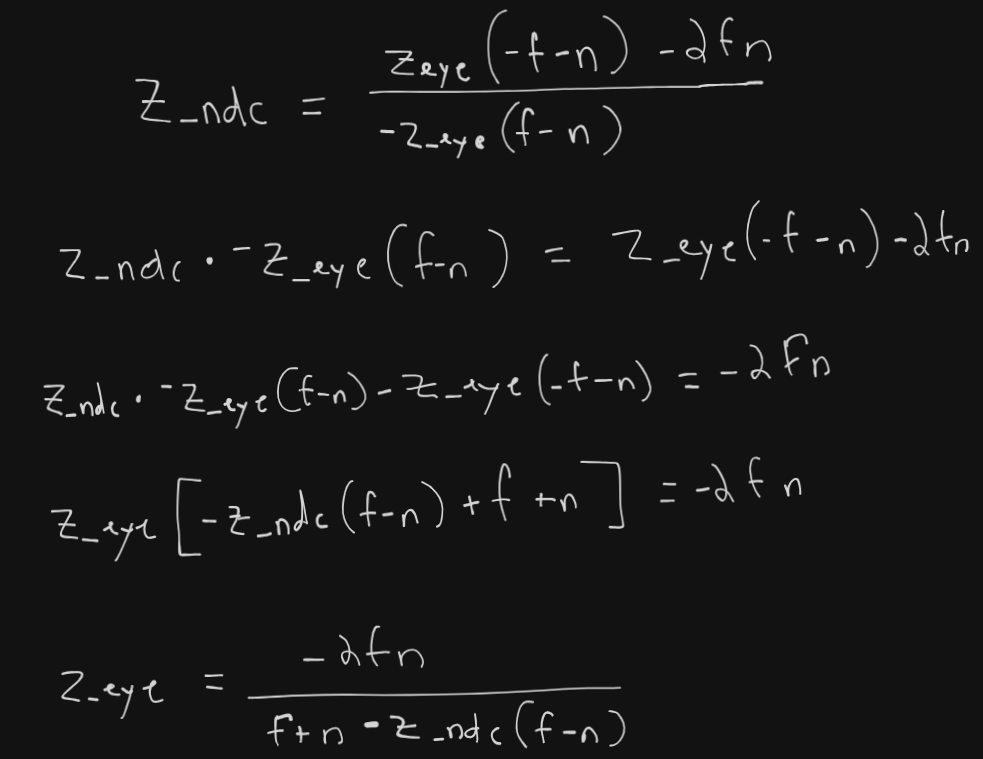 Z_ndc = (z_eye(-f-n) -2fn) / (-z_eye(f-n))
z_ndc · -z_eye(f-n) = z_eye(-f-n)-2fn
z_ndc · -z_eye(f-n)-z_eye(-f-n) = -2fn
z_eye[-z_ndc(f-n)+f+n] = -2fn
z_eye = (-2fn) / (f+n-z_ndc(f-n))